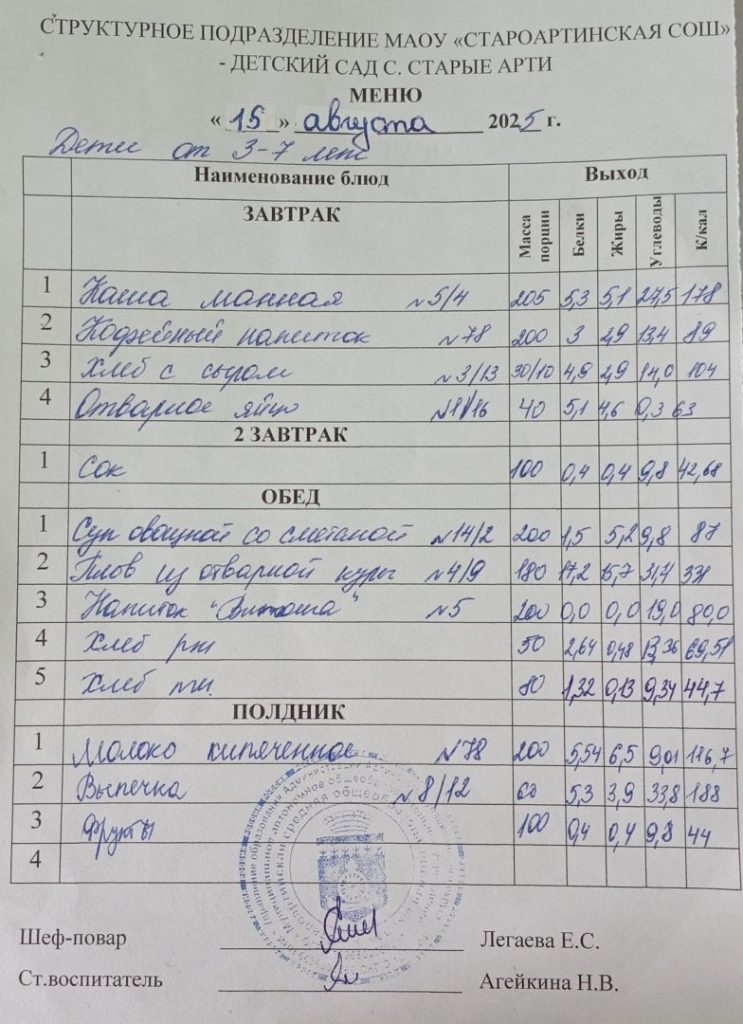 СТРУКТУРНОЕ ПОДРАЗДЕЛЕНИЕ МАОУ «СТАРОАРТИНСКАЯ СОШ»
- ДЕТСКИЙ САД С. СТАРЫЕ АРТИ
МЕНЮ
« 15 » августа 2025 г.
Дети от 3-7 лет
Наименование блюд Выход
ЗАВТРАК Масса порции Белки Жиры Углеводы К/кал
1 Каша манная №5/4 205 5,3 5,1 27,5 178
2 Кофейный напиток №78 200 3 2,9 13,4 89
3 Хлеб с сыром №3/13 30/10 4,9 2,9 14,0 104
4 Отварное яйцо №1/16 40 5,1 4,6 0,3 63
2 ЗАВТРАК
1 Сок 100 0,4 0,4 9,8 42,68
ОБЕД
1 Суп овощной со сметаной №14/2 200 1,5 5,2 9,8 87
2 Плов из отварной куры №4/9 180 17,2 15,7 31,7 331
3 Напиток "Витоша" №5 200 0,0 0,0 19,0 80,0
4 Хлеб рж 50 2,64 0,48 13,36 69,51
5 Хлеб пш. 80 1,32 0,13 9,34 44,7
ПОЛДНИК
1 Молоко кипяченное №78 200 5,54 6,5 9,01 116,7
2 Выпечка №8/12 60 5,3 3,9 33,8 188
3 Фрукты 100 0,4 0,4 9,8 44
4
Шеф-повар Легаева Е.С.
Ст.воспитатель Агейкина Н.В.